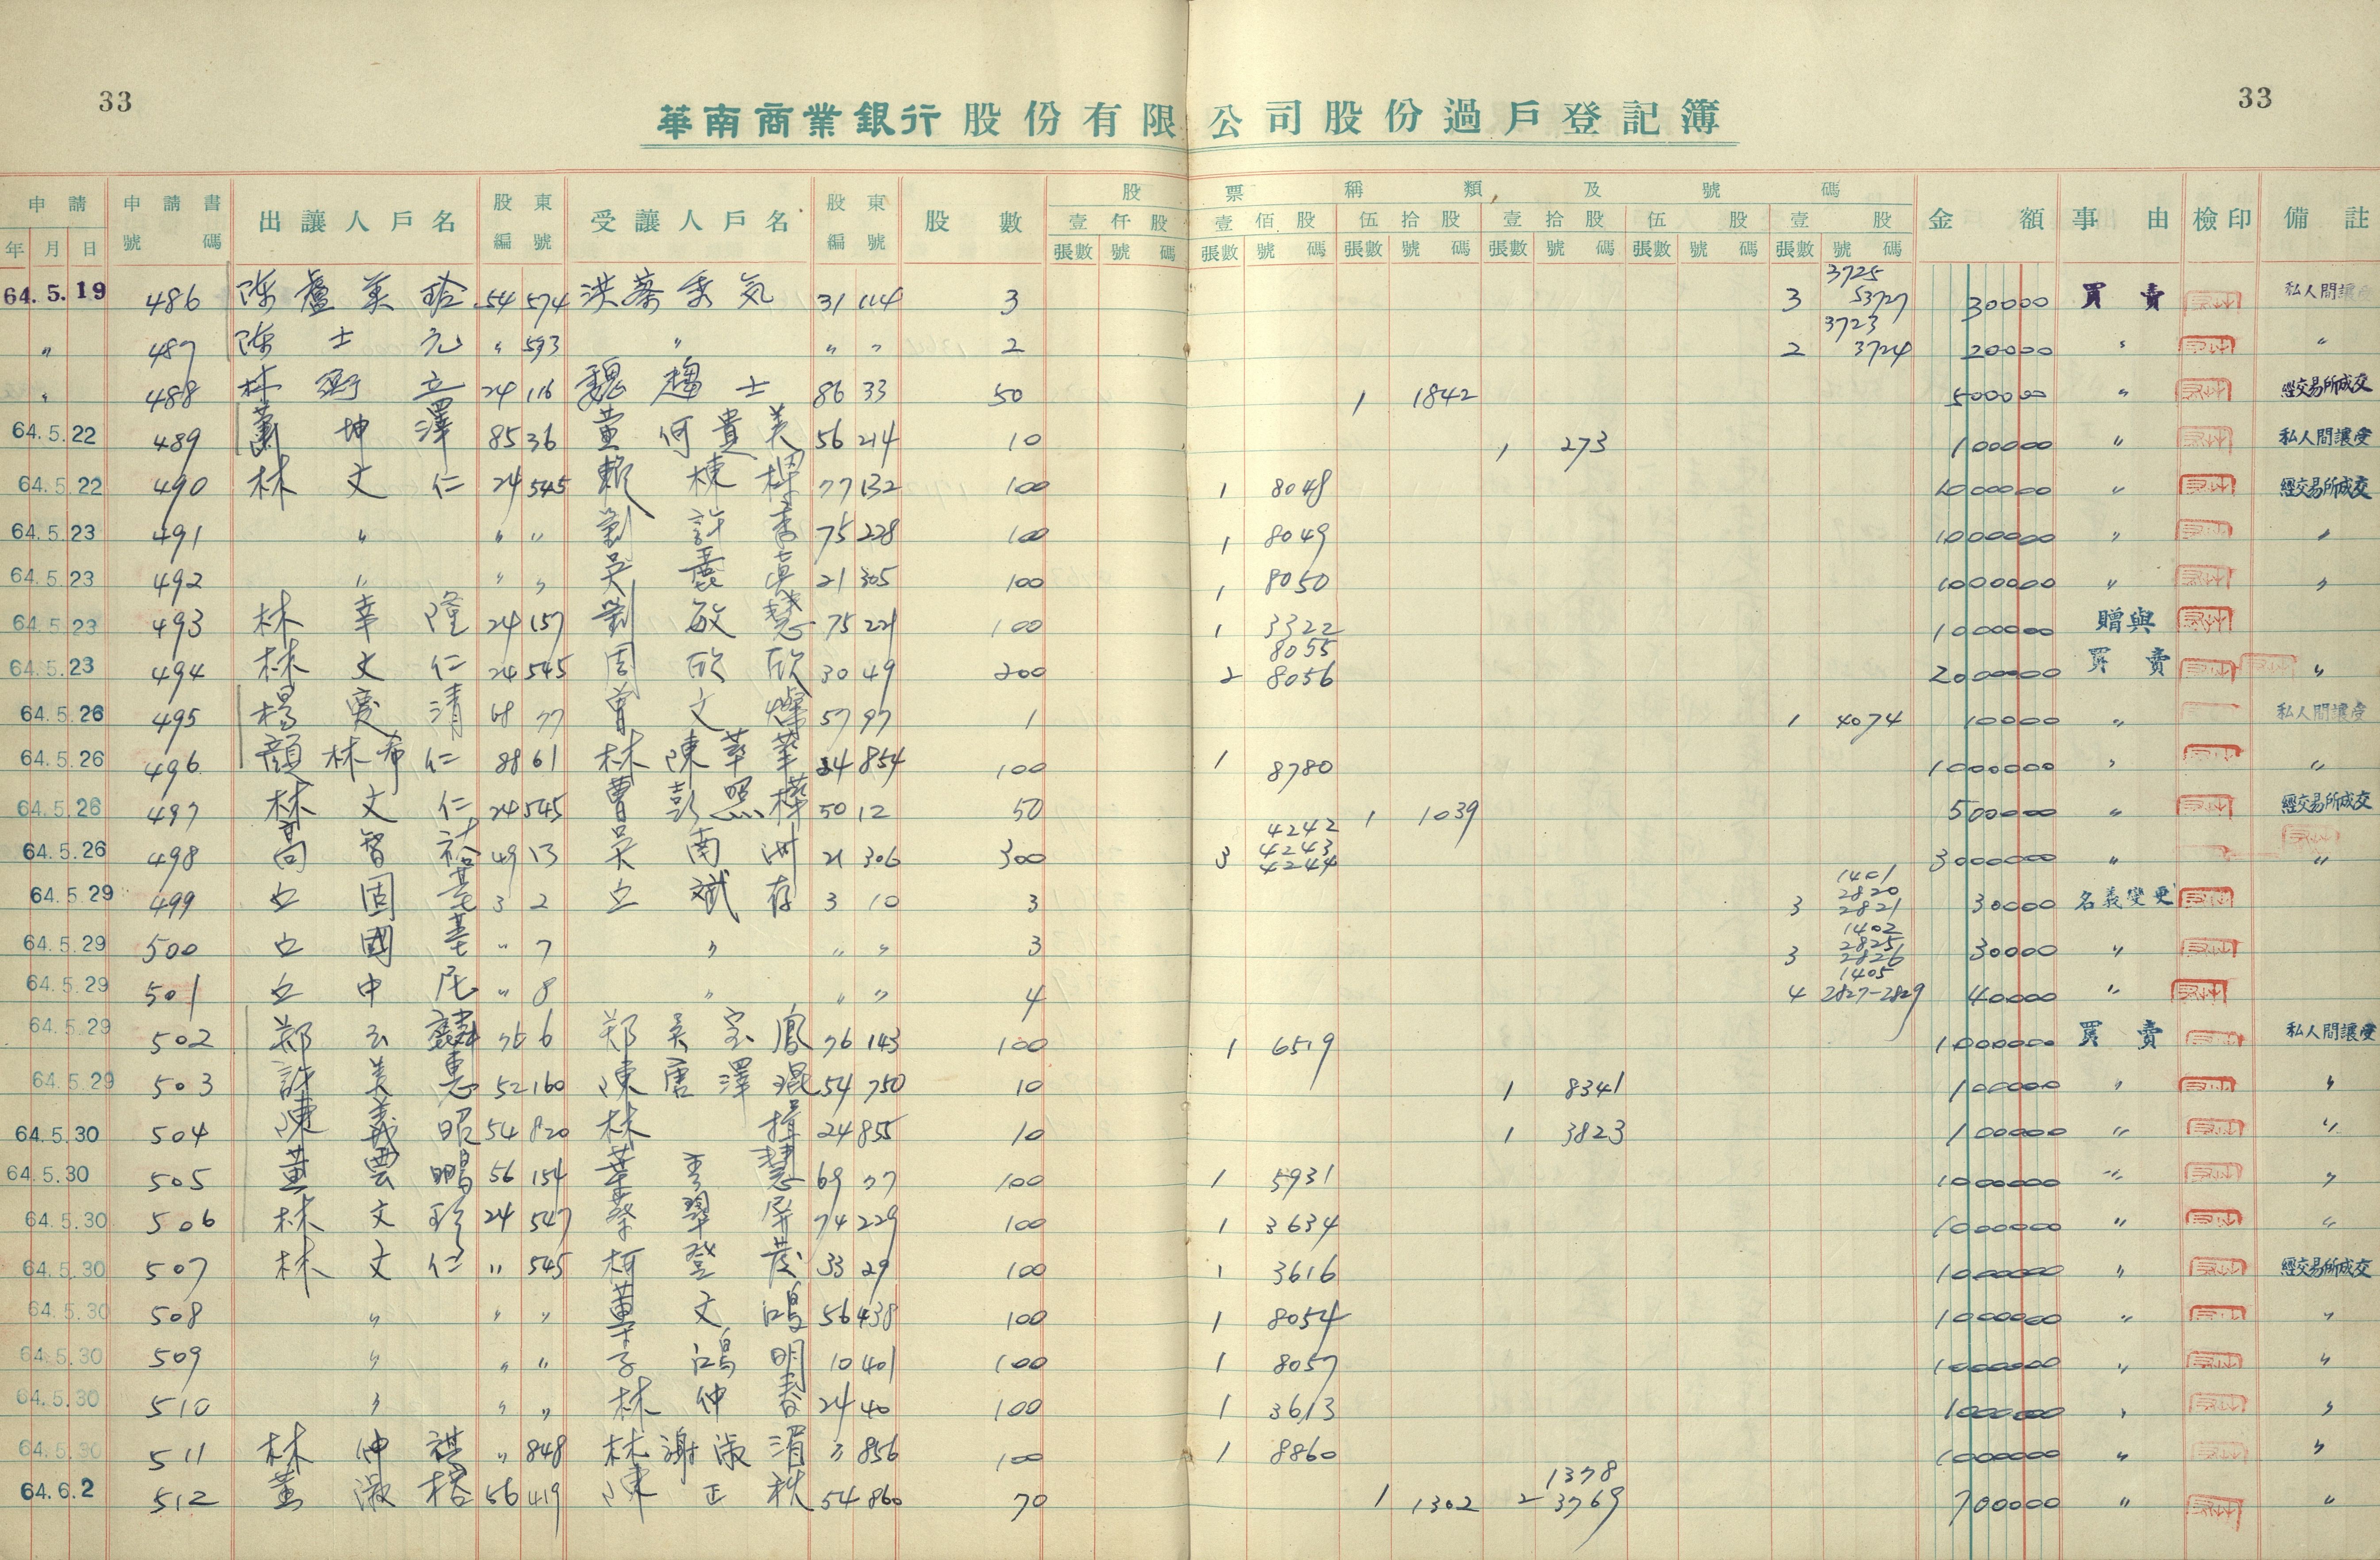 33
33
華南商業銀行股份有限公司股份過戶登記簿
申請 申請書 出讓人戶名 股東 受讓人戶名 股東 股數 股票種類及號碼 金額 事由 檢印 備註
年 月 日 號碼 編號 編號 壹仟股 壹佰股 伍拾股 壹拾股 伍股 壹股
張數 號碼 張數 號碼 張數 號碼 張數 號碼 張數 號碼 張數 號碼
3725
64.5.19 486 陳盧英 54 574 洪蔡 31 114 3 3 53727 30000 買賣 私人間讓受
3723
〃 487 陳士元 〃 593 〃 〃 〃 2 2 3724 20000 〃 〃
〃 488 林衡立 24 116 魏趨士 86 33 50 1 1842 500000 〃 經交易所成交
64.5.22 489 蕭坤澤 85 36 董何貴美 56 214 10 1 273 100000 〃 私人間讓受
64.5.22 490 林文仁 24 545 賴棟樑 77 132 100 1 8048 1000000 〃 經交易所成交
64.5.23 491 〃 〃 〃 劉許 75 228 100 1 8049 1000000 〃 〃
64.5.23 492 〃 〃 〃 吳 21 305 100 1 8050 1000000 〃 〃
64.5.23 493 林幸隆 24 157 劉敏慧 75 221 100 1 3322 1000000 贈與
8055
64.5.23 494 林文仁 24 545 周欣欣 30 49 200 2 8056 2000000 買賣 〃
64.5.26 495 楊慶清 68 77 曾文燦 57 97 1 1 4074 10000 〃 私人間讓受
64.5.26 496 顏林希仁 88 61 林陳華 24 854 100 1 8780 1000000 〃 〃
64.5.26 497 林文仁 24 545 曹彭照 50 12 50 1 1039 500000 〃 經交易所成交
4242
4243
64.5.26 498 高智裕 49 13 吳南洲 21 306 300 3 4244 3000000 〃 〃
1401
2820
64.5.29 499 丘固基 3 2 丘斌存 3 10 3 3 2821 30000 名義變更
1402
2825
64.5.29 500 丘國基 〃 7 〃 〃 〃 3 3 2826 30000 〃
1405
64.5.29 501 丘中 〃 8 〃 〃 〃 4 4 2827-2829 40000 〃
64.5.29 502 鄭麟 76 6 鄭吳宝鳳 76 143 100 1 6519 1000000 買賣 私人間讓受
64.5.29 503 許美惠 52 160 陳唐澤琨 54 750 10 1 8341 100000 〃 〃
64.5.30 504 陳義昭 54 820 林揖 24 855 10 1 3823 100000 〃 〃
64.5.30 505 董雲鵬 56 154 葉秀慧 69 77 100 1 5931 1000000 〃 〃
64.5.30 506 林文珍 24 547 蔡翠屏 74 229 100 1 3634 1000000 〃 〃
64.5.30 507 林文仁 〃 545 柯登茂 33 29 100 1 3616 1000000 〃 經交易所成交
64.5.30 508 〃 〃 〃 董文鴻 56 438 100 1 8054 1000000 〃 〃
64.5.30 509 〃 〃 〃 李鴻明 10 401 100 1 8057 1000000 〃 〃
64.5.30 510 〃 〃 〃 林仲春 24 40 100 1 3613 1000000 〃 〃
64.5.30 511 林仲祺 〃 848 林謝淑湄 〃 856 100 1 8860 1000000 〃 〃
1378
64.6.2 512 董淑榕 56 419 陳正秩 54 860 70 1 1302 2 3769 700000 〃 〃